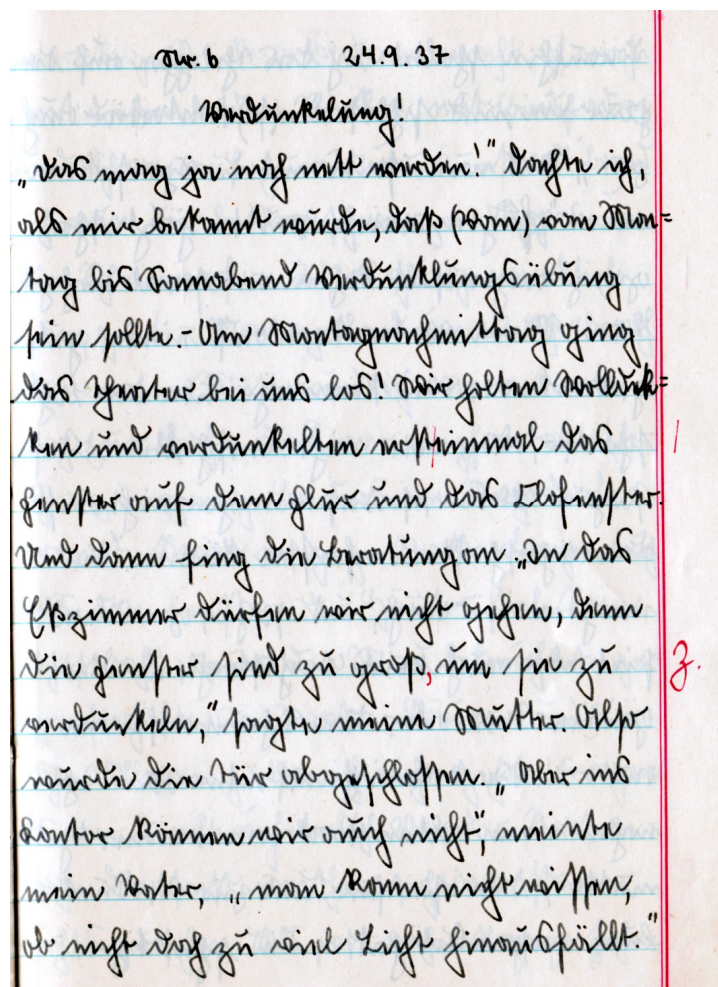 Nr. 6 24.9.37
Verdunkelung!
„Das mag ja noch nett werden!" dachte ich,
als mir bekannt wurde, daß (Von) von Mon=
tag bis Sonnabend Verdunklungsübung
sein sollte. - Am Montagnachmittag ging
das Theater bei uns los! Wir holten Wolldek=
ken und verdunkelten ersteinmal das
Fenster auf dem Flur und das Klofenster.
Und dann fing die Beratung an. „In das
Eßzimmer dürfen wir nicht gehen, denn
die Fenster sind zu groß, um sie zu
verdunkeln," sagte meine Mutter. Also
wurde die Tür abgeschlossen. „Aber ins
Kontor können wir auch nicht", meinte
mein Vater, „man kann nicht wissen,
ob nicht doch zu viel Licht hinausfällt."
Z.